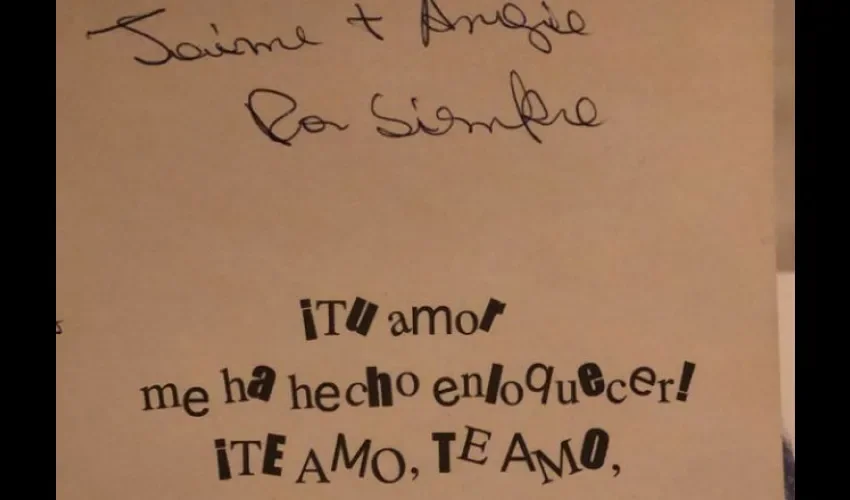 Jaime + Angie
Por Siempre
¡Tu amor
me ha hecho enloquecer!
¡TE AMO, TE AMO,